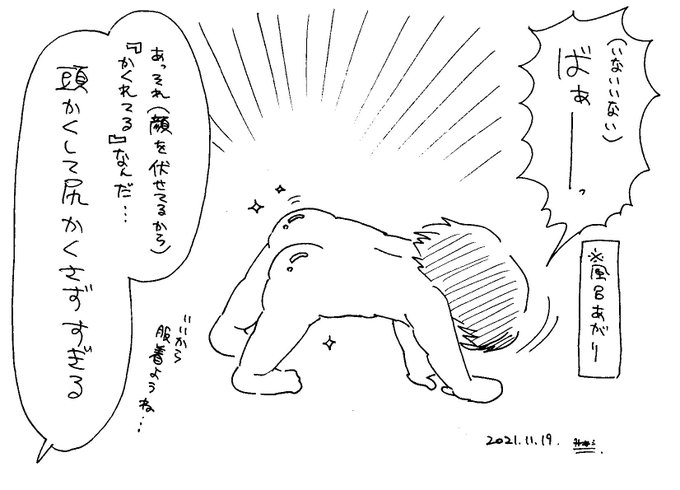 (いないいない)
ばぁーーっ
※風呂あがり
あっそれ(顔を伏せてるから)
『かくれてる』なんだ…
頭かくして尻かくさずすぎる
いいから
服着ようね…
2021.11.19.